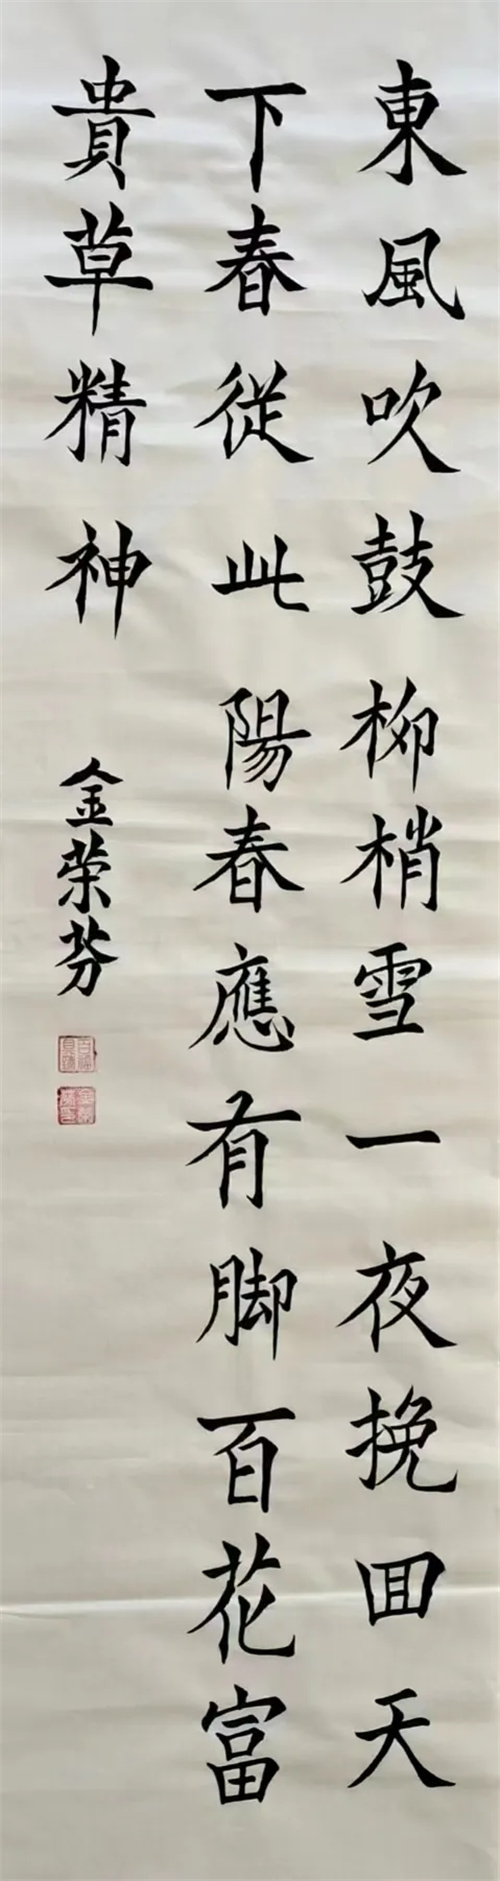 東風吹鼓柳梢雪一夜挽回天
下春從此陽春應有脚百花富
貴草精神
金荣芬